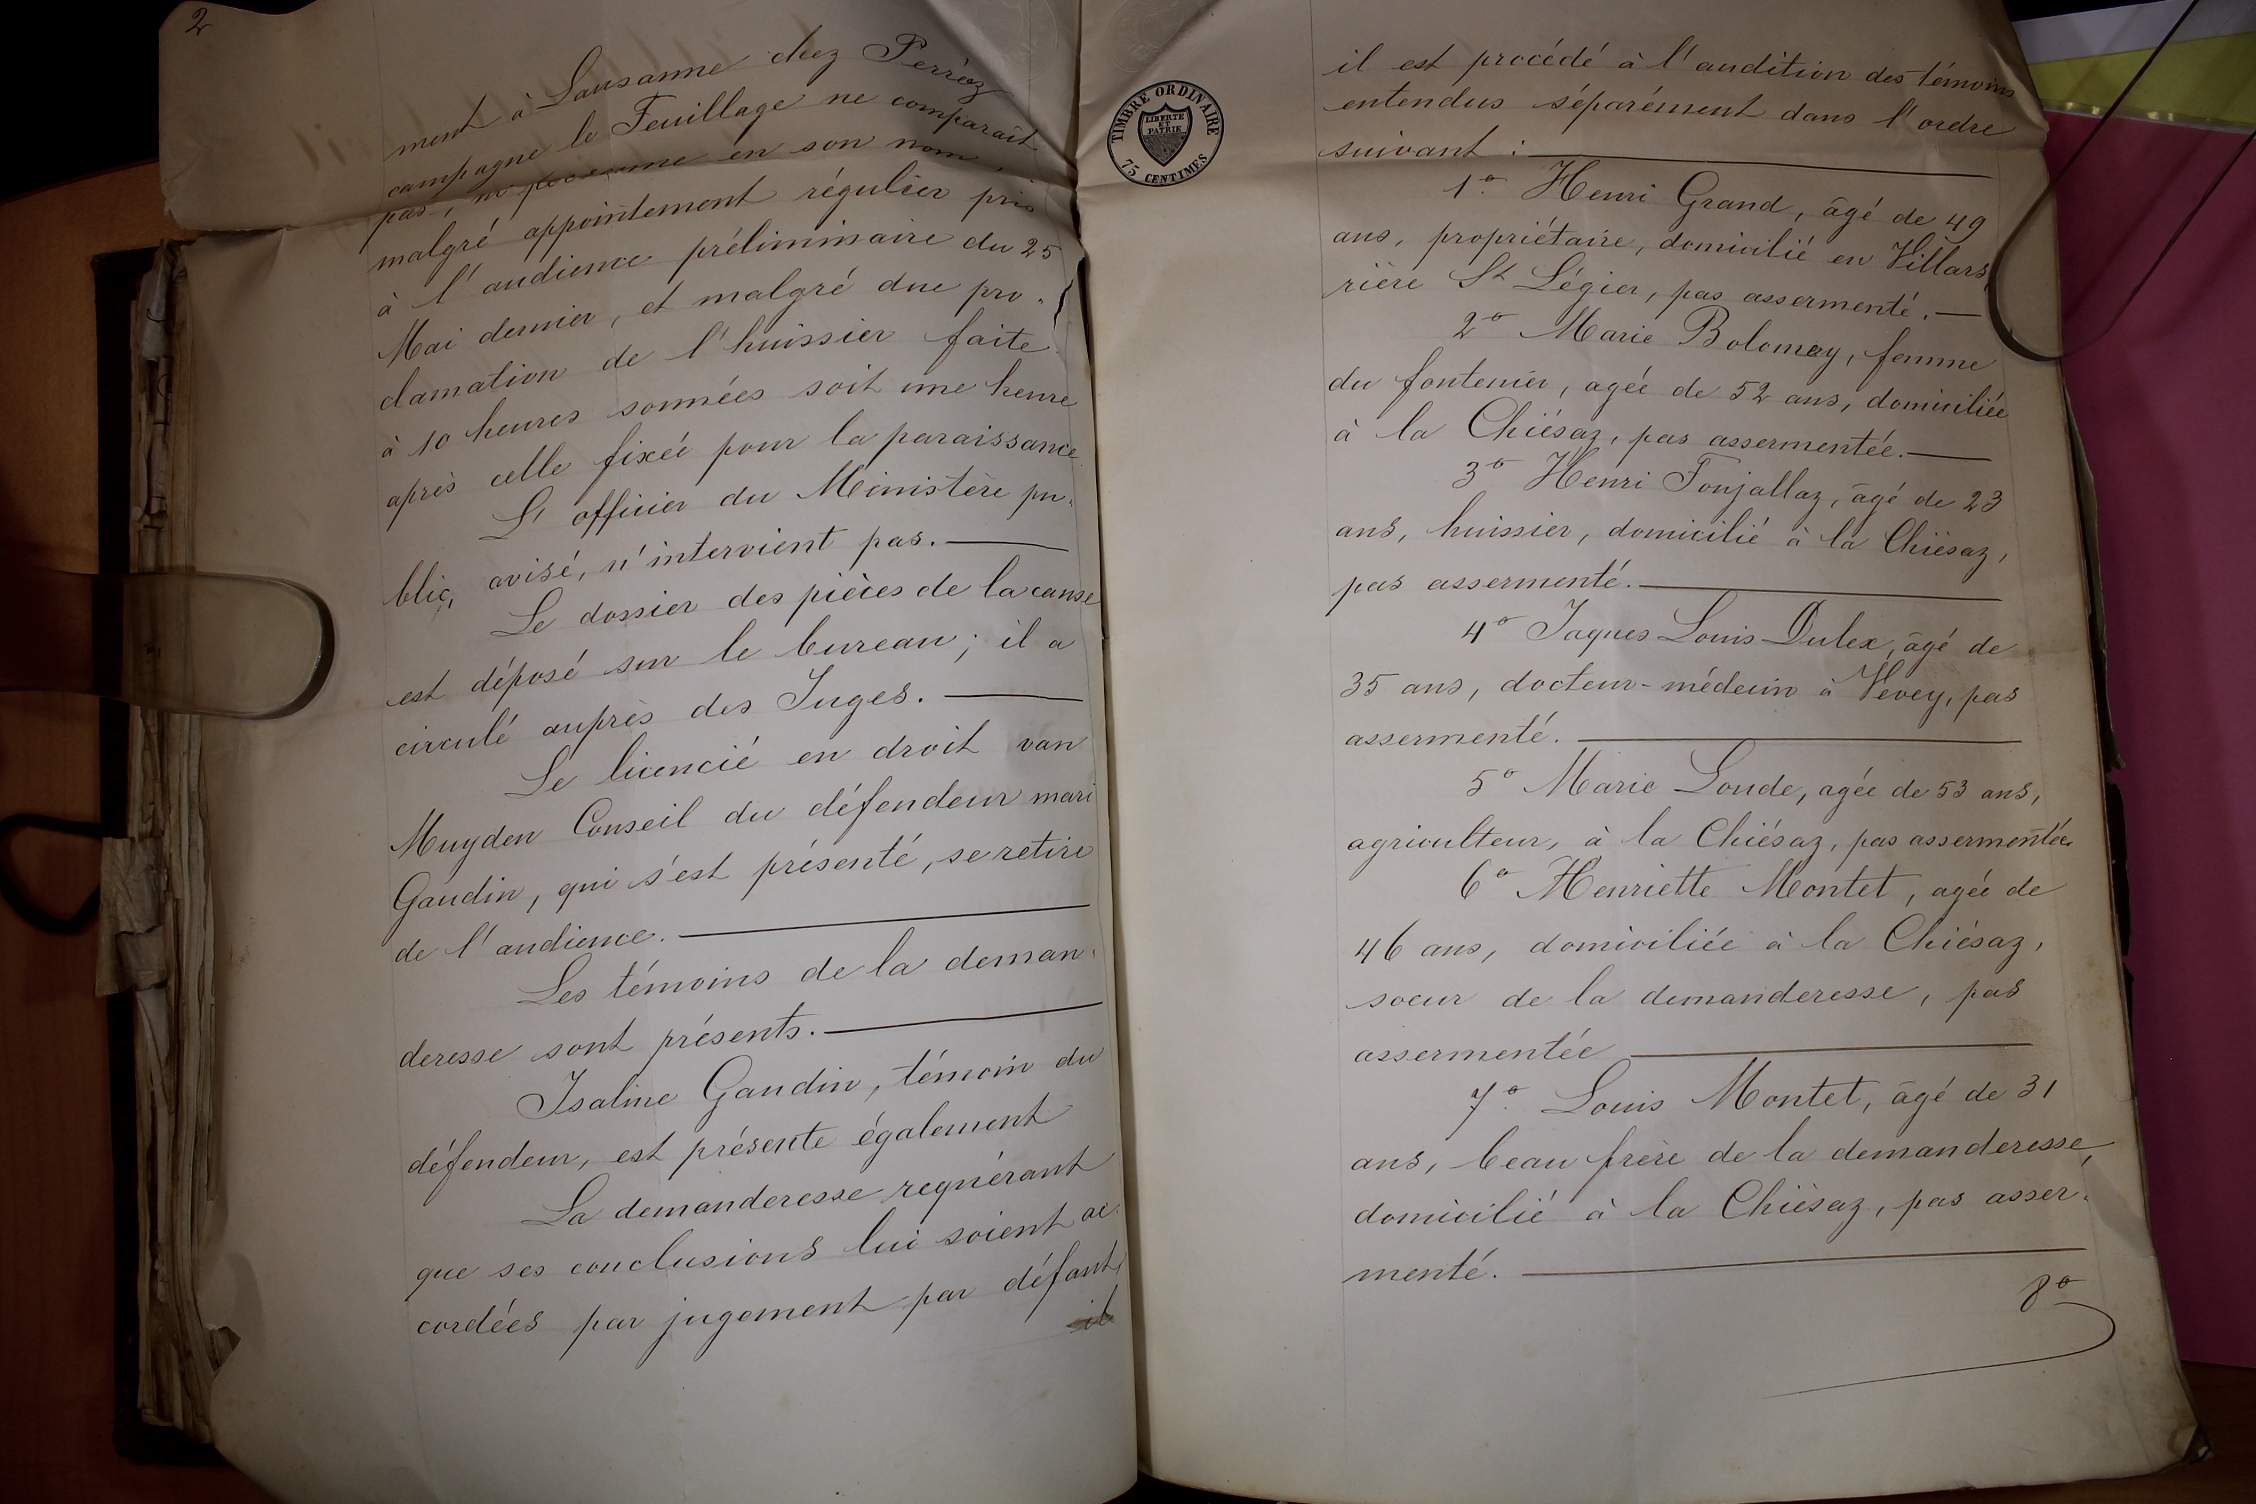 2
ment à Lausanne chez Perréaz
campagne le Feuillage ne comparaît
pas, ni personne en son nom,
malgré appointement régulier pris
à l'audience préliminaire du 25
Mai dernier, et malgré due pro-
clamation de l'huissier faite
à 10 heures sonnées soit une heure
après celle fixée pour la paraissance
L'officier du Ministère pu-
blic, avisé, n'intervient pas.
Le dossier des pièces de la cause
est déposé sur le bureau; il a
circulé auprès des Juges.
Le licencié en droit van
Muyden Conseil du défendeur mari
Gaudin, qui s'est présenté, se retire
de l'audience.
Les témoins de la deman-
deresse sont présents.
Isaline Gaudin, témoin du
défendeur, est présente également
La demanderesse requérant
que ses conclusions lui soient ac-
cordées par jugement par défaut,
il
TIMBRE ORDINAIRE
LIBERTÉ
ET
PATRIE
75 CENTIMES
il est procédé à l'audition des témoins
entendus séparément dans l'ordre
suivant :
1º Henri Grand, âgé de 49
ans, propriétaire, domicilié en Villars
rière St Légier, pas assermenté.
2º Marie Bolomey, femme
du fontenier, agée de 52 ans, domiciliée
à la Chiésaz, pas assermentée.
3º Henri Fonjallaz, âgé de 23
ans, huissier, domicilié à la Chiésaz,
pas assermenté.
4º Jaques Louis Dulex, âgé de
35 ans, docteur-médecin à Vevey, pas
assermenté.
5º Marie Loude, agée de 53 ans,
agriculteur, à la Chiésaz, pas assermentée
6º Henriette Montet, agée de
46 ans, domiciliée à la Chiésaz,
soeur de la demanderesse, pas
assermentée
7º Louis Montet, âgé de 31
ans, beau frère de la demanderesse,
domicilié à la Chiésaz, pas asser-
menté.
8º